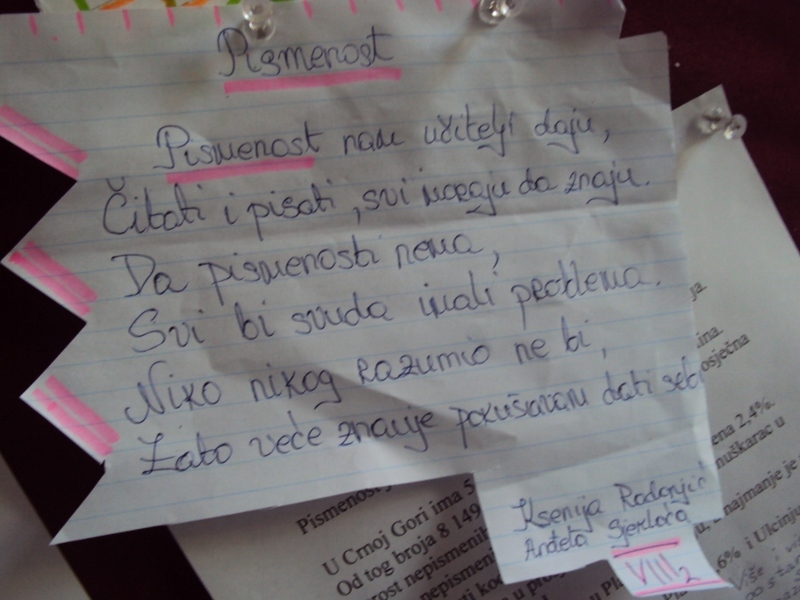 Pismenost
Pismenost nam učitelji daju,
Čitati i pisati, svi moraju da znaju.
Da pismenosti nema,
Svi bi svuda imali problema.
Niko nikog razumio ne bi,
Zato veće znanje pokušavam dati sebi
Ksenija Radonjić
Anđela Gjerkoča
VIII2
ja.
ina.
osječna
ena 2,4%.
muškarac u
Pismenost
U Crnoj Gori ima 5
Od tog broja 8 149
najmanje je
rost nepismenih
6% i Ulcinju
nepismeni